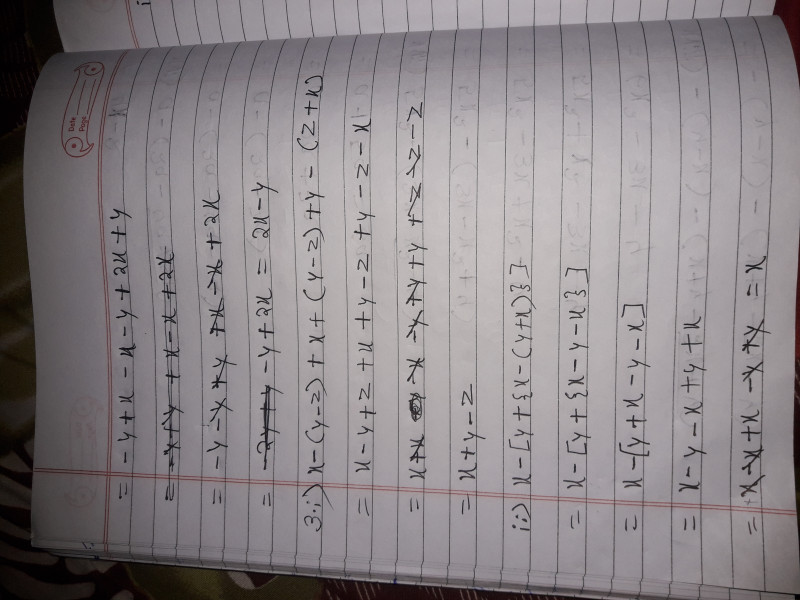 Date
Page
= -y+x-x-y+2x+y
= -y+y+x-x+2x
= -y-y+y+x-x+2x
= -2y+y-y+2x = 2x-y
3.i) x-(y-z)+x+(y-z)+y-(z+x)
= x-y+z+x+y-z+y-z-x
= x+x-x-y+y+y+z-z-z
= x+y-z
ii) x-[y+{x-(y+x)}]
= x-[y+{x-y-x}]
= x-[y+x-y-x]
= x-y-x+y+x
= x-x+x-y+y = x